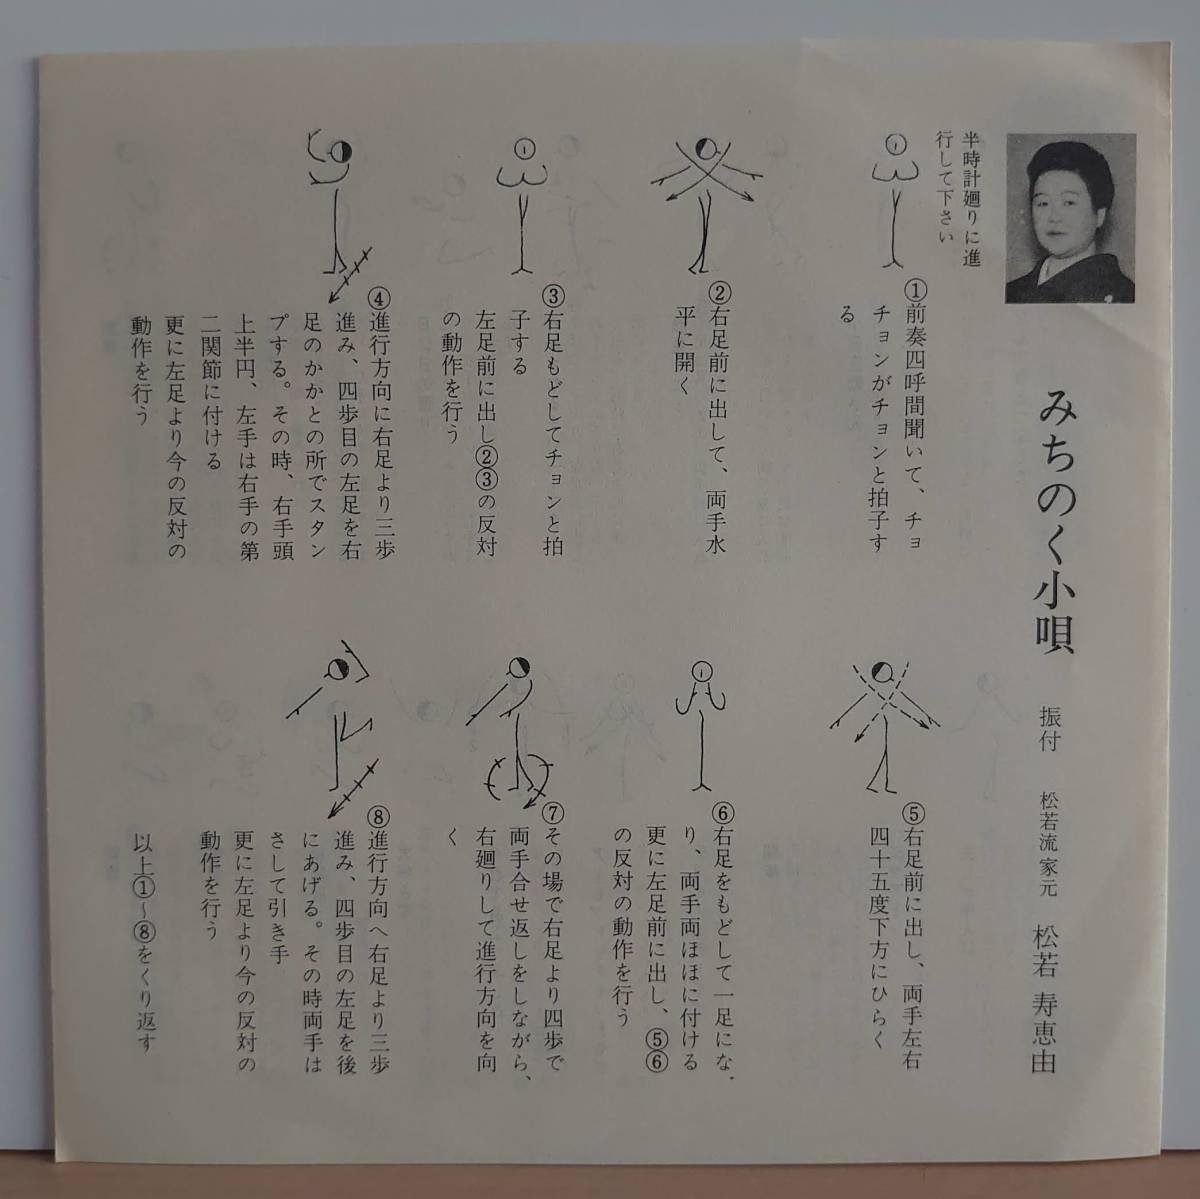 みちのく小唄
振付 松若流家元 松若寿恵由
半時計廻りに進
行して下さい
①前奏四呼間聞いて、チョ
チョンがチョンと拍子す
る
②右足前に出して、両手水
平に開く
③右足もどしてチョンと拍
子する
左足前に出し②③の反対
の動作を行う
④進行方向に右足より三歩
進み、四歩目の左足を右
足のかかとの所でスタン
プする。その時、右手頭
上半円、左手は右手の第
二関節に付ける
更に左足より今の反対の
動作を行う
⑤右足前に出し、両手左右
四十五度下方にひらく
⑥右足をもどして一足にな
り、両手両ほほに付ける
更に左足前に出し、⑤⑥
の反対の動作を行う
⑦その場で右足より四歩で
両手合せ返しをしながら、
右廻りして進行方向を向
く
⑧進行方向へ右足より三歩
進み、四歩目の左足を後
にあげる。その時両手は
さして引き手
更に左足より今の反対の
動作を行う
以上①〜⑧をくり返す